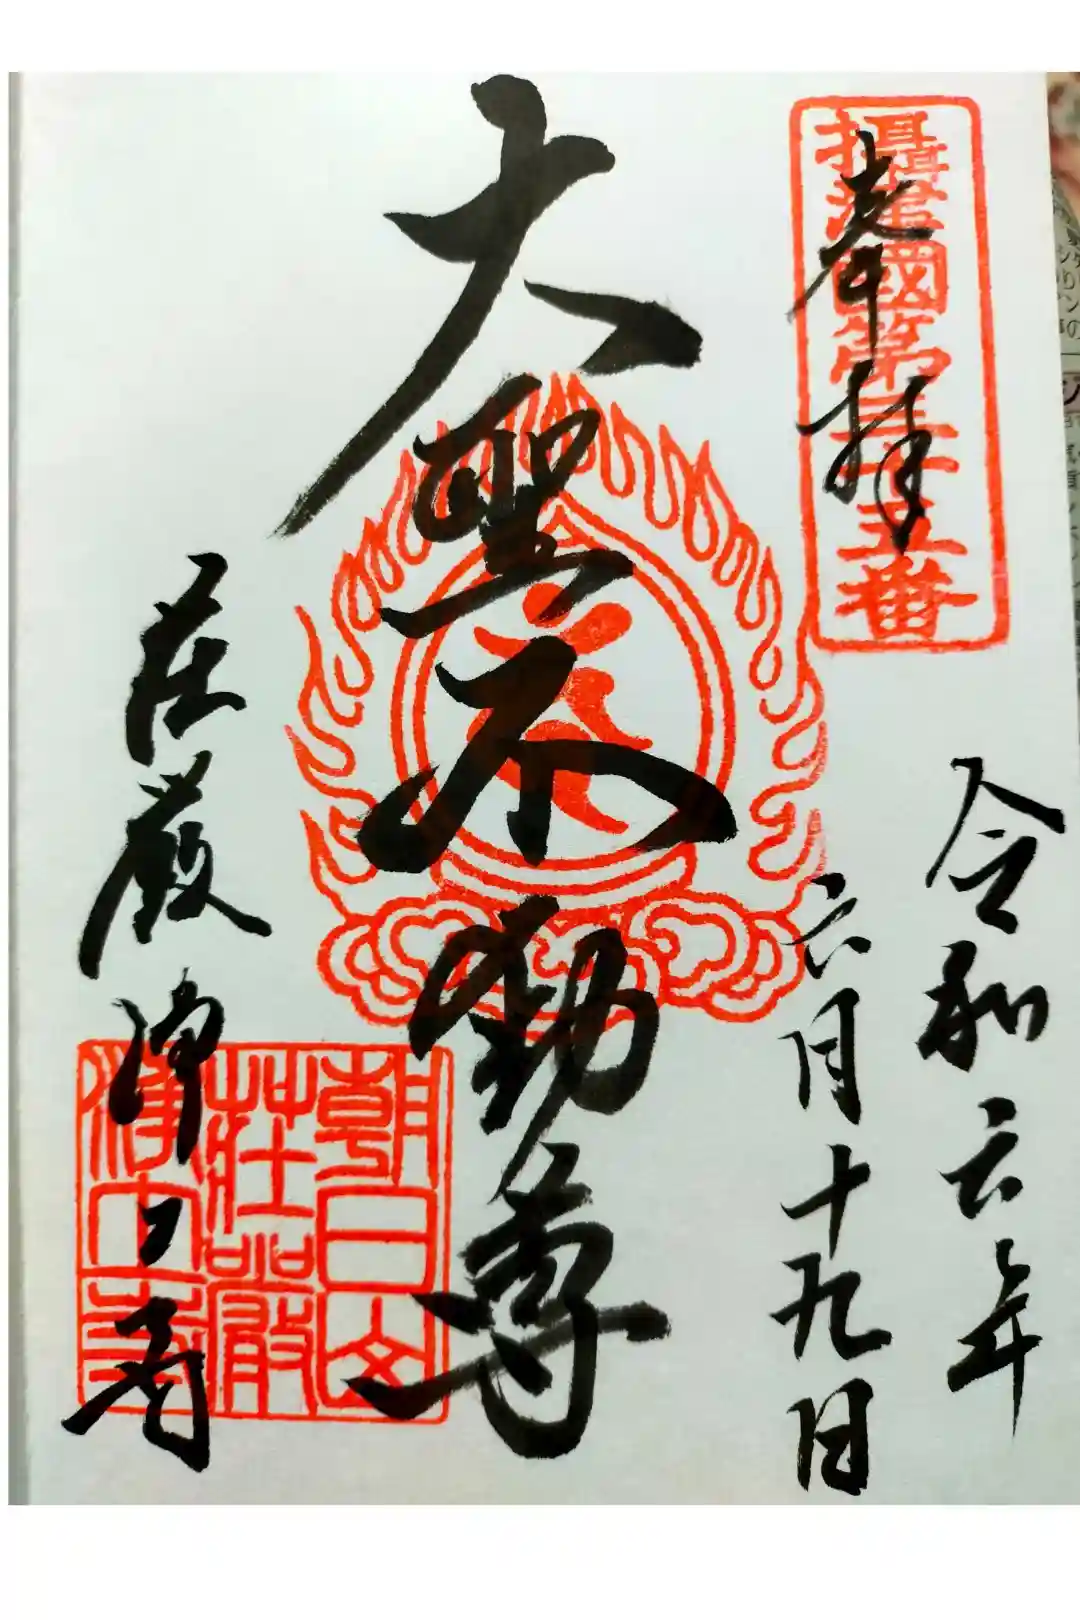 攝津國第三十五番
奉拝
令和六年
六月十九日
大聖不動尊
荘厳浄土寺
朝日山
莊嚴
淨土寺